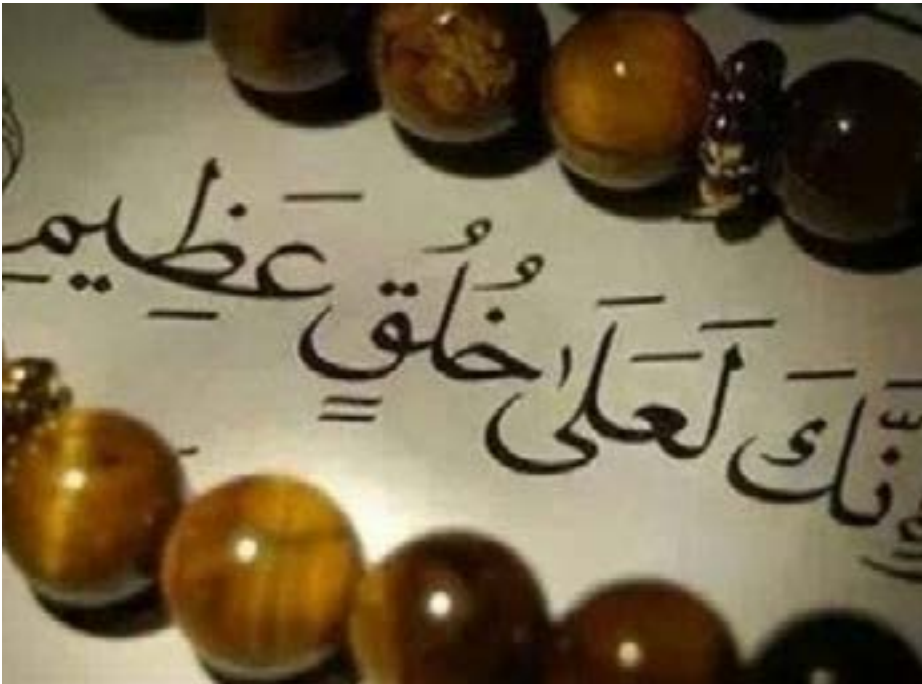 إِنَّكَ لَعَلَىٰ خُلُقٍ عَظِيمٍ